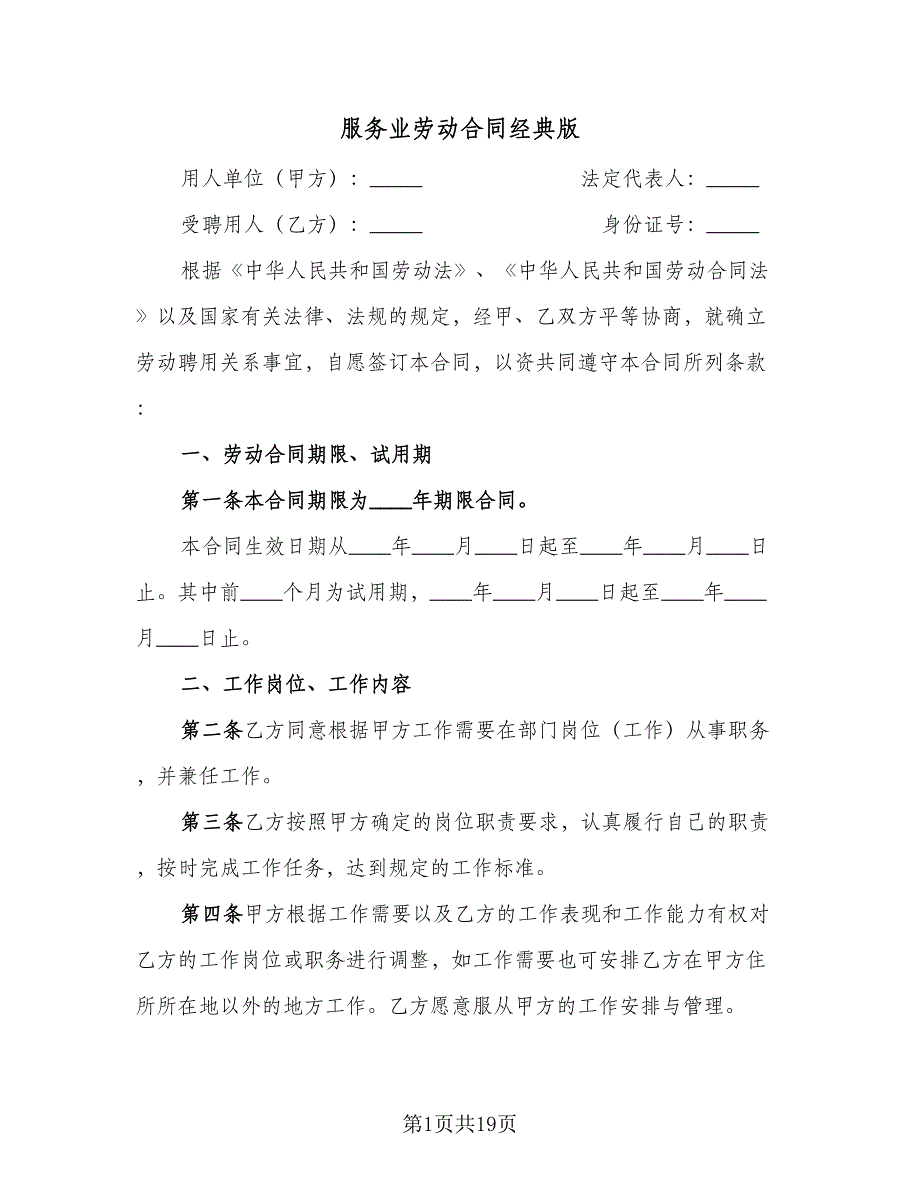 服务业劳动合同经典版
用人单位（甲方）：_____ 法定代表人：_____
受聘用人（乙方）：_____ 身份证号：_____
根据《中华人民共和国劳动法》、《中华人民共和国劳动合同法
》以及国家有关法律、法规的规定，经甲、乙双方平等协商，就确立
劳动聘用关系事宜，自愿签订本合同，以资共同遵守本合同所列条款
：
一、劳动合同期限、试用期
第一条本合同期限为____年期限合同。
本合同生效日期从____年____月____日起至____年____月____日
止。其中前____个月为试用期，____年____月____日起至____年____
月____日止。
二、工作岗位、工作内容
第二条乙方同意根据甲方工作需要在部门岗位（工作）从事职务
，并兼任工作。
第三条乙方按照甲方确定的岗位职责要求，认真履行自己的职责
，按时完成工作任务，达到规定的工作标准。
第四条甲方根据工作需要以及乙方的工作表现和工作能力有权对
乙方的工作岗位或职务进行调整，如工作需要也可安排乙方在甲方住
所所在地以外的地方工作。乙方愿意服从甲方的工作安排与管理。
第1页共19页